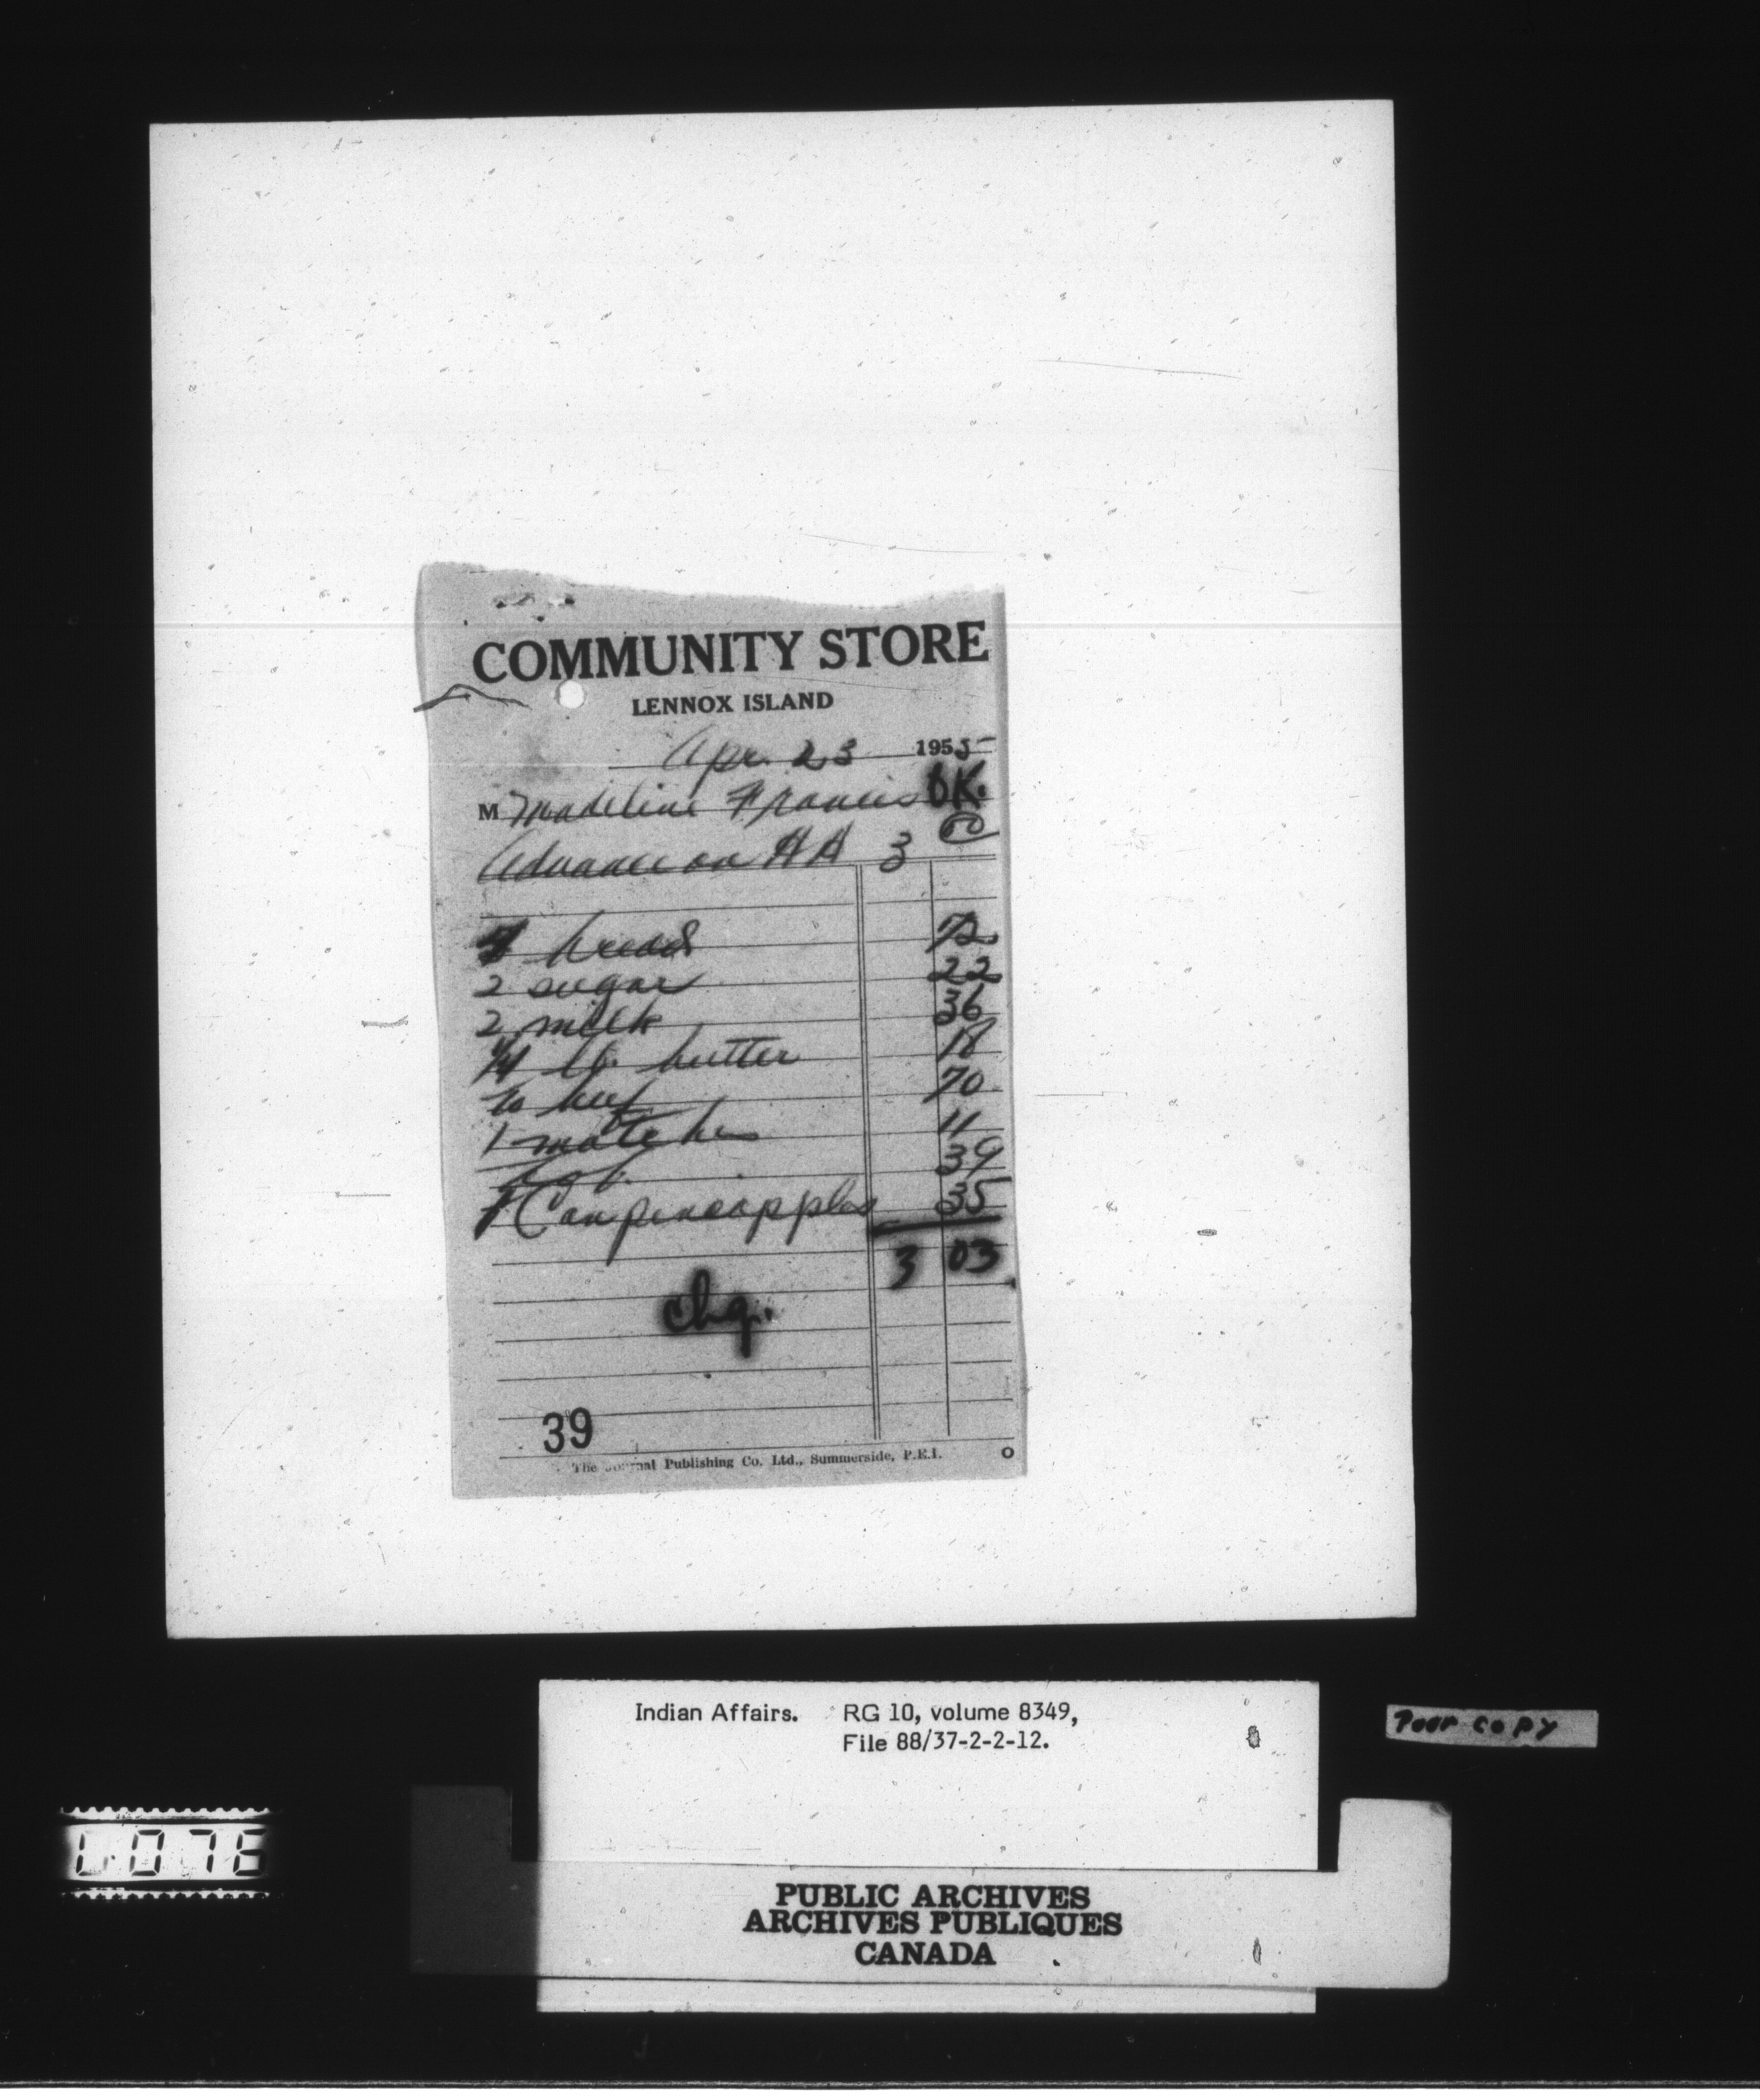 COMMUNITY STORE
LENNOX ISLAND
Apr. 23 1955
M Madeline Francis OK.
Advance on HA 3 00
4 bread 72
2 sugar 22
2 milk 36
1/4 lb. butter 18
beef 70
1 matches 11
39
1 Can pineapples 35
3 03
chg.
39
The Journal Publishing Co. Ltd., Summerside, P.E.I.
Indian Affairs. RG 10, volume 8349,
File 88/37-2-2-12.
Poor copy
PUBLIC ARCHIVES
ARCHIVES PUBLIQUES
CANADA